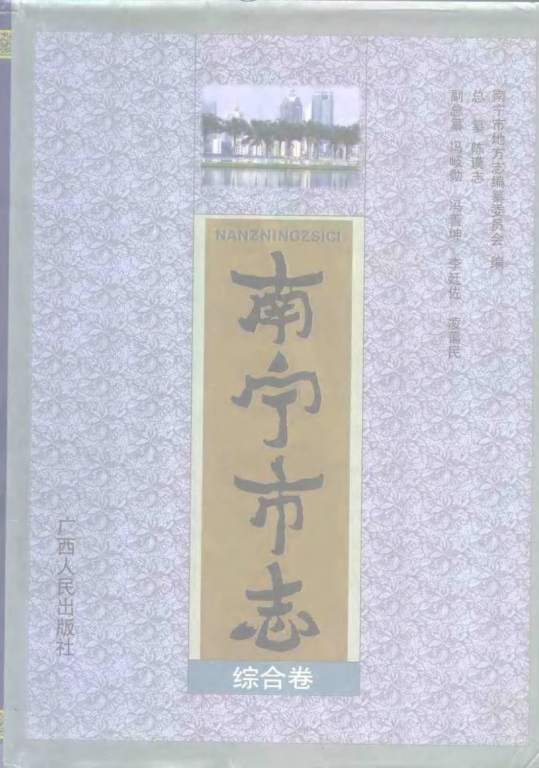 南宁市地方志编纂委员会 编
总 纂 陈谦志
副总纂 冯岐勋 冯震坤 李廷佐
NANZNINGZSICI
南宁市志
综合卷
广西人民出版社